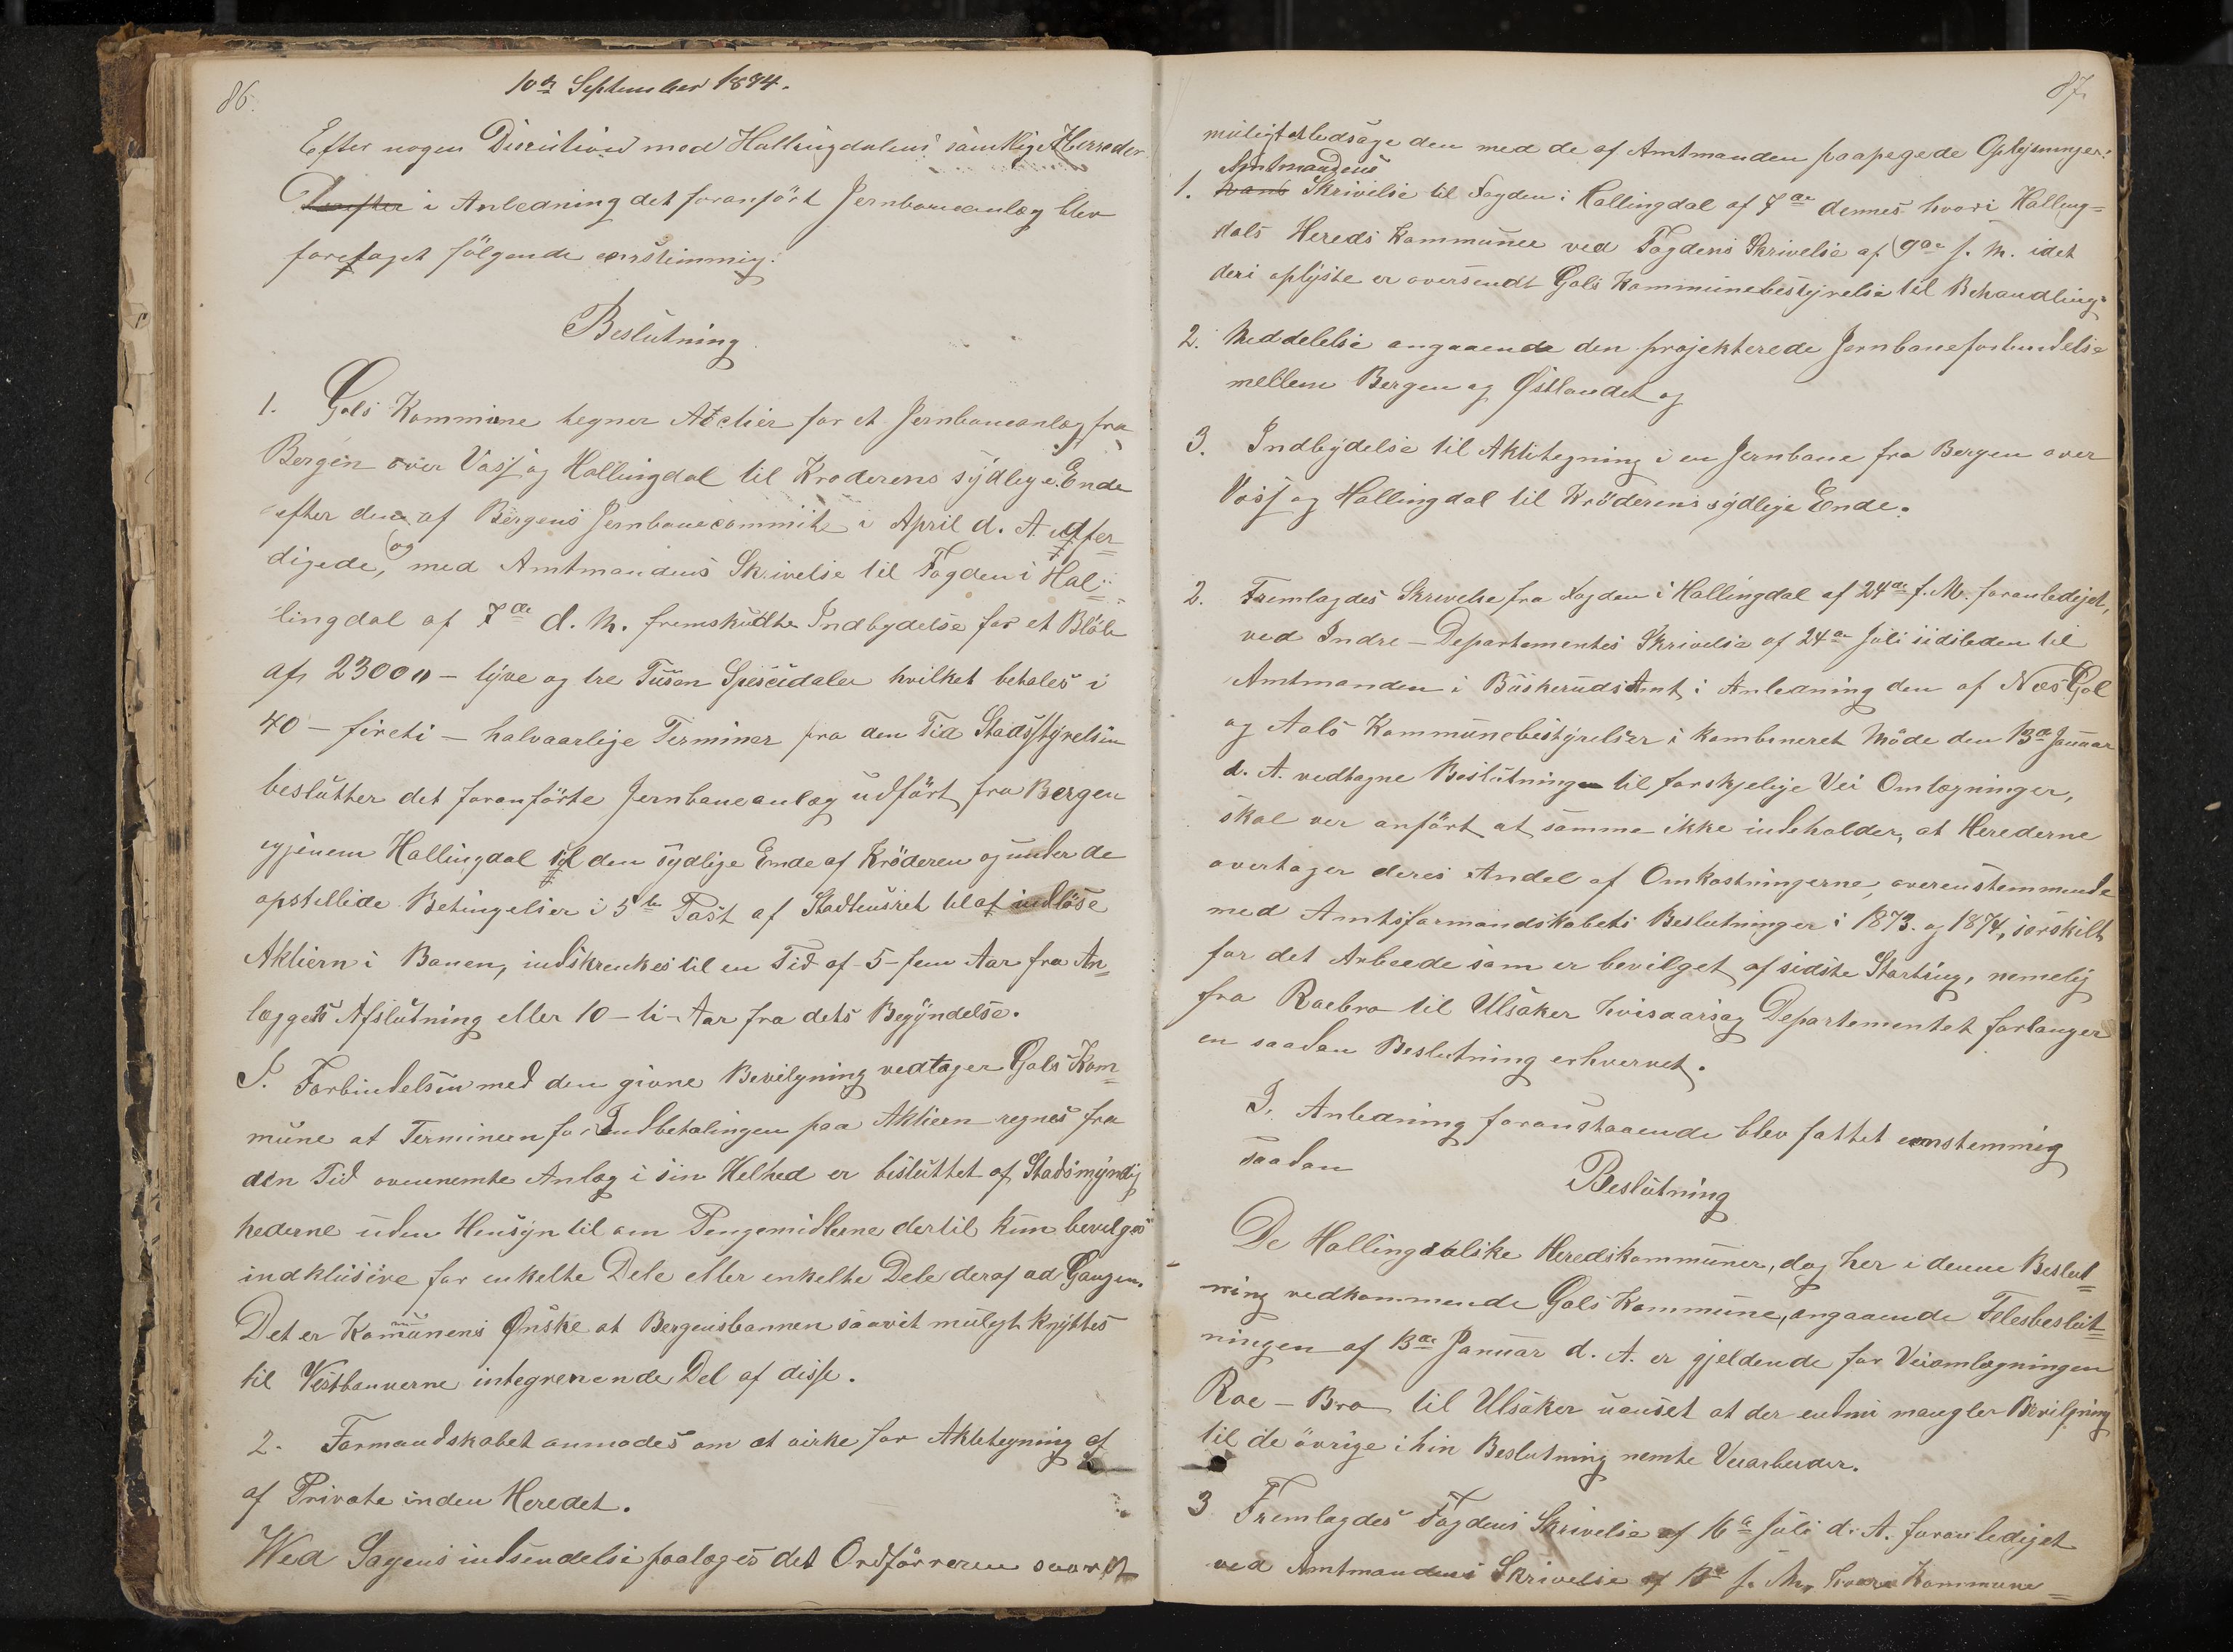 86.
10de September 1874.
Efter nogen Discution med Hallingdalens samtlige Herreder
Drøfter i Anledning det foranført Jernbaneanlæg blev
foretaget følgende enstimmig:
Beslutning
1. Gols Kommune tegner Actier for et Jernbaneanlæg fra
Bergen over Voss og Hallingdal til Krøderens sydlige Ende
efter den af Bergens Jernbanecommite i April d. A. udfer=
digede, og med Amtmandens Skrivelse til Fogden i Hal=
lingdal af 7de d. M. fremskudte Indbydelse for et Bløb
af 23000 – tyve og tre Tusen Spesiedaler hvilket betales i
40 – fireti – halvaarlige Terminer fra den Tid Stadsstyrelsen
beslutter det foranførte Jernbaneanlæg udført fra Bergen
igjenem Hallingdal til den sydlige Ende af Krøderen og under de
opstillede Betingelser i 5te Post af Stadtusret til at indløse
Aktiern i Banen, indskrenkes til en Tid af 5 – fem Aar fra An=
læggets Afslutning eller 10 – ti – Aar fra dets Begyndelse.
I. Forbindelsen med den givne Bevilgning vedtager Gols Kom=
mune at Termineen for Indbetalingen paa Aktieen regnes fra
den Tid ovennemte Anlæg i sin Helhed er besluttet af Stadsmyndig
hederne uden Hensyn til om Pengemidlerne dertil kun bevilges
indklusive for enkelte Dele eller enkelte Dele deraf ad Gangen.
Det er Kommunens Ønske at Bergensbannen saavit muligt knyttes
til Vestbannerne integrerende Del af disse.
2. Formandskabet anmodes om at virke for Aktietegning af
af Private inden Heredet.
Wed Sagens indsendelse paalæges det Ordførreren saavit
87.
muligt at ledsage den med de af Amtmanden paapegede Oplysninger:
1. hans Amtmandens Skrivelse til Fogden i Hallingdal af 7de dennes hvori Halling=
dals Hereds Kommuner ved Fogdens Skrivelse af 9de s. M. idet
deri oplyste er oversendt Gols Kommunebestyrelse til Behandling.
2. Meddelelse angaaende den projekterede Jernbaneforbindelse
mellem Bergen og Østlandet og
3. Indbydelse til Aktitegning i en Jernbane fra Bergen over
Voss og Hallingdal til Krøderens sydlige Ende.
2. Fremlagdes Skrivelse fra Fogden i Hallingdal af 24de f. M. foranlediget,
ved Indre – Departementes Skrivelse af 24de Juli sidsleden til
Amtmanden i Buskeruds Amt i Anledning den af Næs Gol
og Aals Kommunebestyrelser i kombineret Møde den 13de Januar
d. A. vedtagne Beslutninger til forskjelige Vei Omlægninger,
skal ver anført at samme ikke indeholder, at Herederne
overtager deres Andel af Omkostningerne, overenstemmende
med Amtsformandskabets Beslutninger i 1873. og 1874, sørskilt
for det Arbeede som er bevilget af sidste Storting, nemelig
fra Roebro til Ulsaker hvisaarsag Departementet forlanger
en saadan Beslutning erhvervet.
I. Anledning foranstaaende blev fattet enstemmig
saadan
Beslutning
De Hallingdalske Heredskommuner, dog her i denne Beslut=
ning vedkommende Gols Kommune, angaaende Felesbeslut=
ningen af 13de Januar d. A. er gjeldende for Veiomlægningen
Roe – Bro til Ulsaker uanset at der endnu mangler Bevilgning
til de øvrige i hin Beslutning nemte Veiarbeider.
3 Fremlagdes Fogdens Skrivelse af 16de Juli d. A. foranlediget
ved Amtmandens Skrivelse af 13de s. M. hvori Kommune=